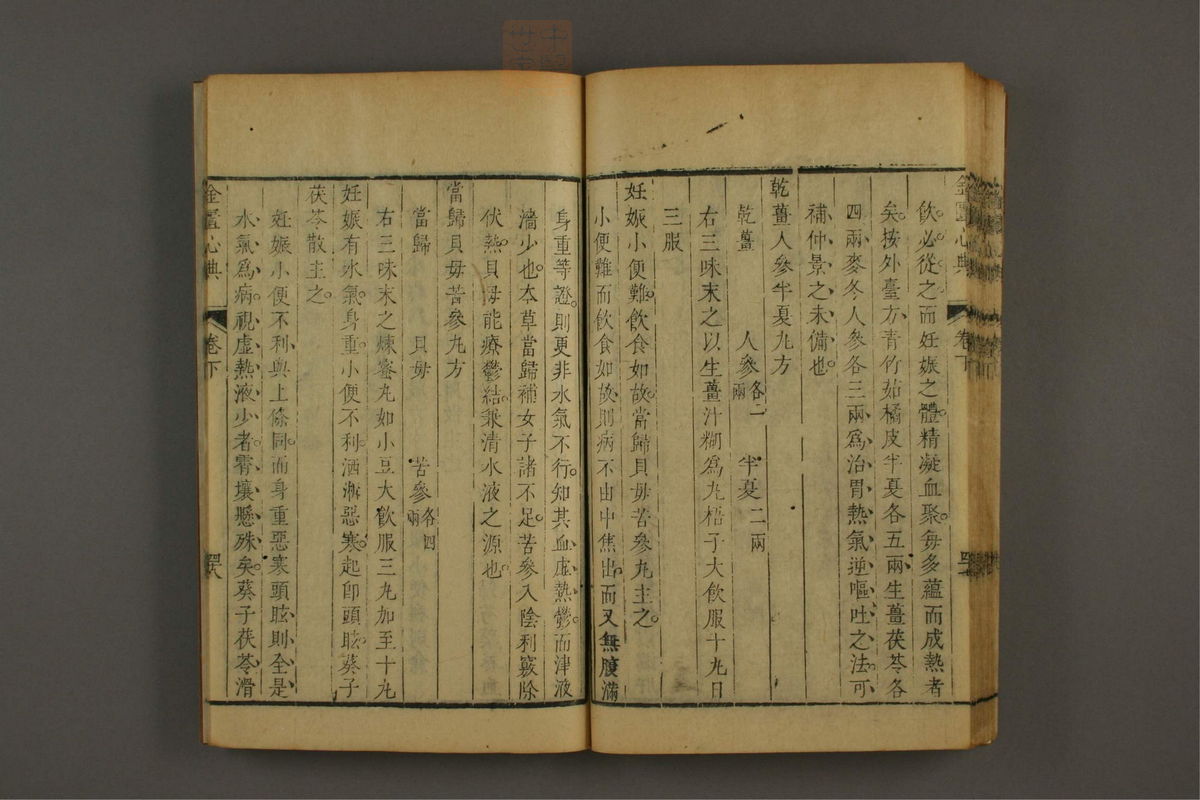 金匱心典 卷下
飲必從之而妊娠之體精凝血聚每多蘊而成熱者
矣按外臺方青竹茹橘皮半夏各五兩生薑茯苓各
四兩麥冬人參各三兩爲治胃熱氣逆嘔吐之法可
補仲景之未備也
乾薑人參半夏丸方
乾薑 人參各一兩 半夏二兩
右三味末之以生薑汁糊爲丸梧子大飲服十丸日
三服
妊娠小便難飲食如故當歸貝母苦參丸主之
小便難而飲食如故則病不由中焦出而又無腹滿
身重等證則更非水氣不行知其血虛熱鬱而津液
濇少也本草當歸補女子諸不足苦參入陰利竅除
伏熱貝母能療鬱結兼清水液之源也
當歸貝母苦參丸方
當歸 貝母 苦參各四兩
右三味末之煉蜜丸如小豆大飲服三丸加至十丸
妊娠有水氣身重小便不利洒淅惡寒起卽頭眩葵子
茯苓散主之
妊娠小便不利與上條同而身重惡寒頭眩則全是
水氣爲病視虛熱液少者霄壤懸殊矣葵子茯苓滑
金匱心典 卷下 四八